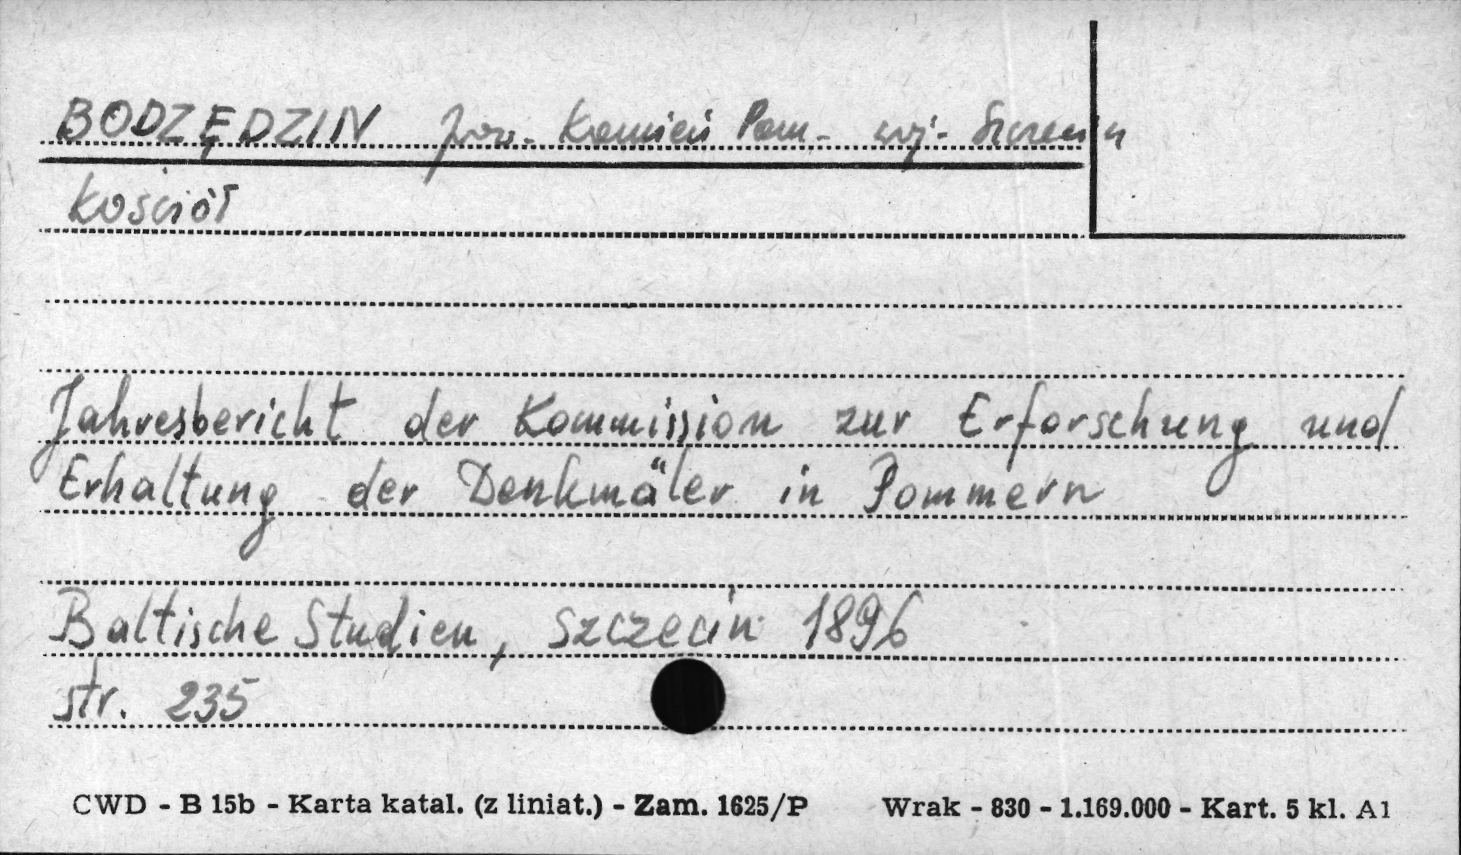 BODZĘDZIN pow. Kamień Pom. woj. Szczecin
Kościół
Jahresbericht der Kommission zur Erforschung und
Erhaltung der Denkmäler in Pommern
Baltische Studien, Szczecin 1896
str. 235
CWD - B 15b - Karta katal. (z liniat.) - Zam. 1625/P Wrak - 830 - 1.169.000 - Kart. 5 kl. A1